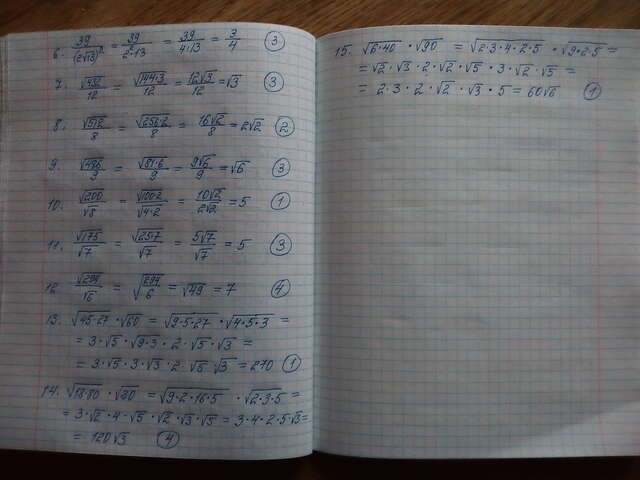 6. 39/(2√13)² = 39/2²·13 = 39/4·13 = 3/4 (3)
7. √432/12 = √144·3/12 = 12√3/12 = √3 (3)
8. √512/8 = √256·2/8 = 16√2/8 = 2√2 (2)
9. √486/9 = √81·6/9 = 9√6/9 = √6 (3)
10. √200/√8 = √100·2/√4·2 = 10√2/2√2 = 5 (1)
11. √175/√7 = √25·7/√7 = 5√7/√7 = 5 (3)
12. √294/√6 = √294/6 = √49 = 7 (4)
13. √45·27 · √60 = √9·5·27 · √4·5·3 =
= 3·√5·√9·3 · 2·√5·√3 =
= 3·√5·3·√3·2·√5 √3 = 270 (1)
14. √18·80 · √30 = √9·2·16·5 · √2·3·5 =
= 3·√2·4·√5·√2·√3·√5 = 3·4·2·5√3 =
= 120√3 (4)
15. √6·40 · √90 = √2·3·4·2·5 · √9·2·5 =
= √2·√3·2·√2·√5 · 3·√2·√5 =
= 2·3·2·√2·√3·5 = 60√6 (1)